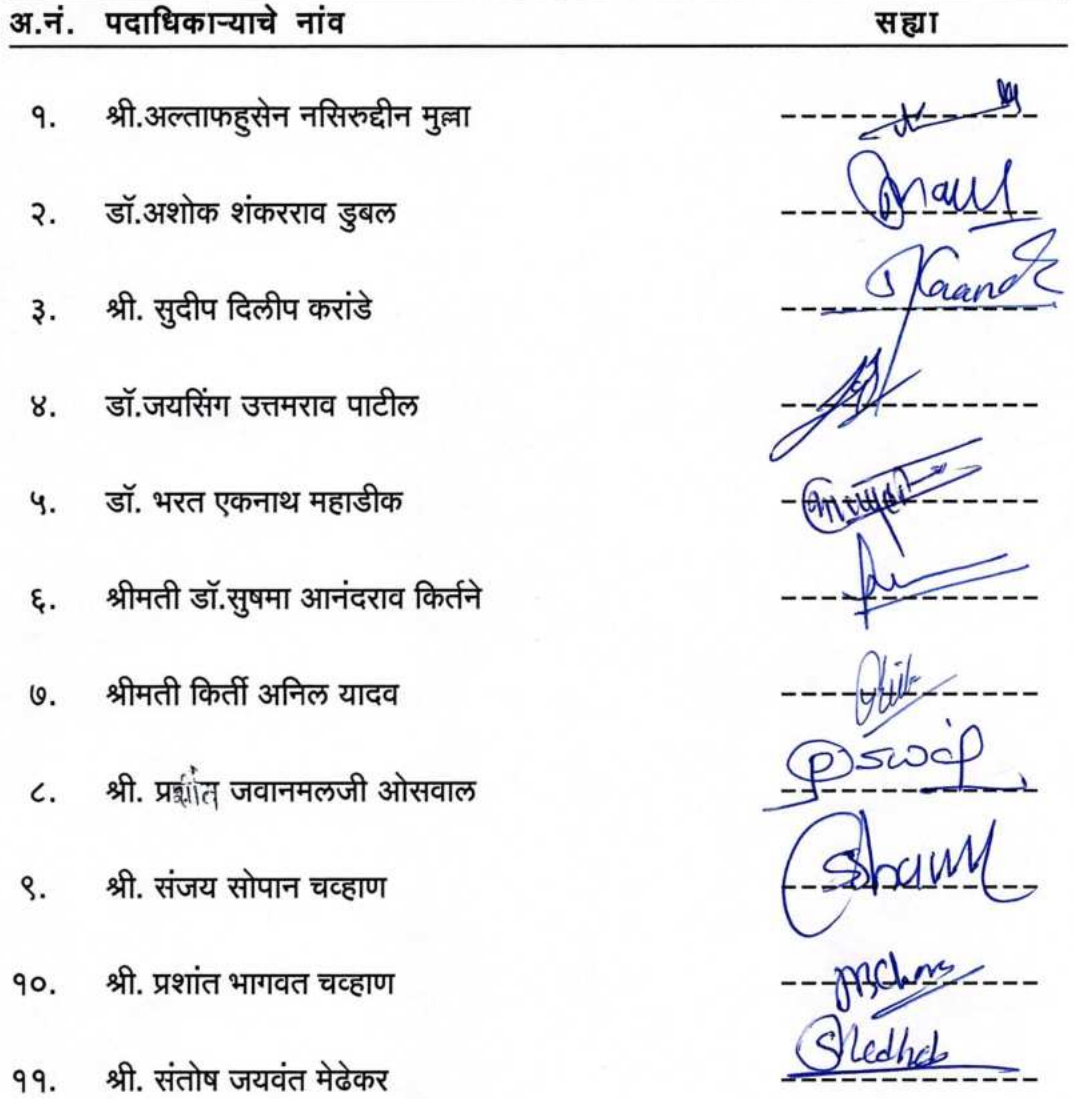 अ.नं. पदाधिकाऱ्याचे नांव सह्या
१. श्री.अल्ताफहुसेन नसिरुद्दीन मुल्ला
२. डॉ.अशोक शंकरराव डुबल
३. श्री. सुदीप दिलीप करांडे
४. डॉ.जयसिंग उत्तमराव पाटील
५. डॉ. भरत एकनाथ महाडीक
६. श्रीमती डॉ.सुषमा आनंदराव किर्तने
७. श्रीमती किर्ती अनिल यादव
८. श्री. प्रशांत जवानमलजी ओसवाल
९. श्री. संजय सोपान चव्हाण
१०. श्री. प्रशांत भागवत चव्हाण
११. श्री. संतोष जयवंत मेढेकर